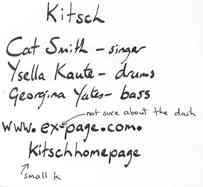 Kitsch
Cat Smith - singer
Ysella Kaute - drums
Georgina Yates - bass
not sure about the dash
www.ex-page.com.
kitschhomepage
small k